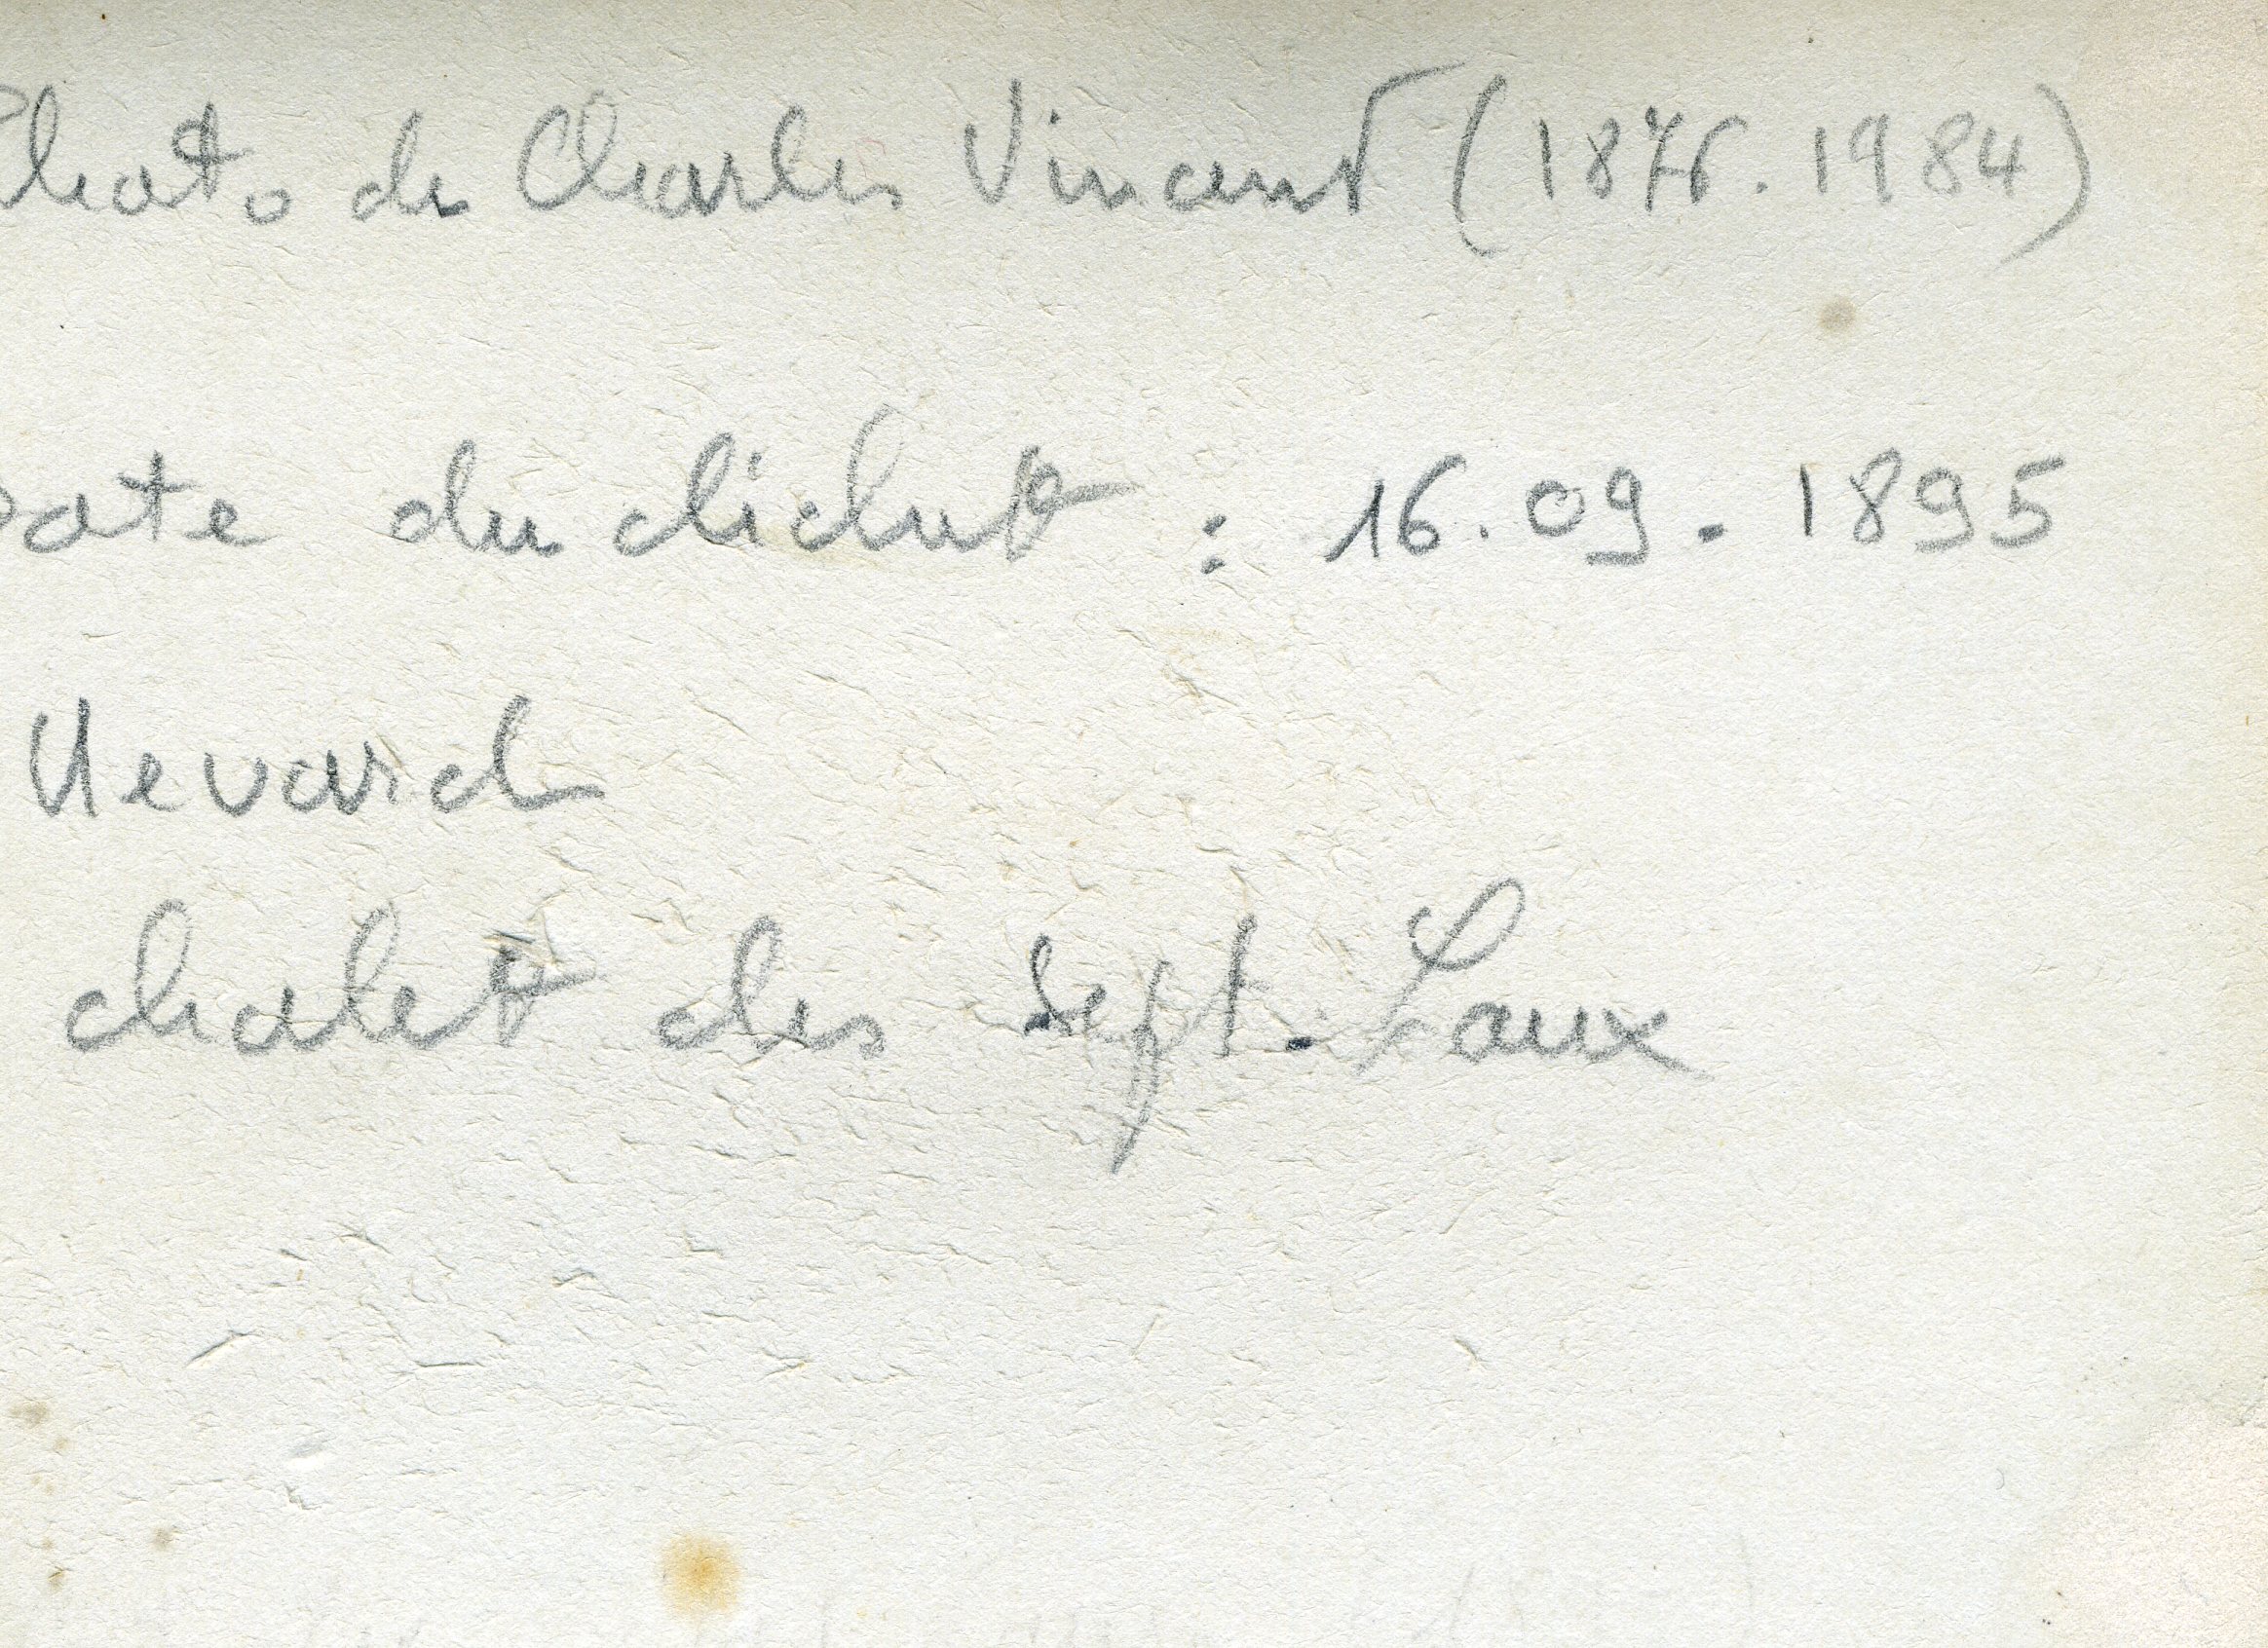 Photo de Charles Vincent (1876.1984)
Date du clichet : 16.09.1895
Uevard
chalet des sept.Laux